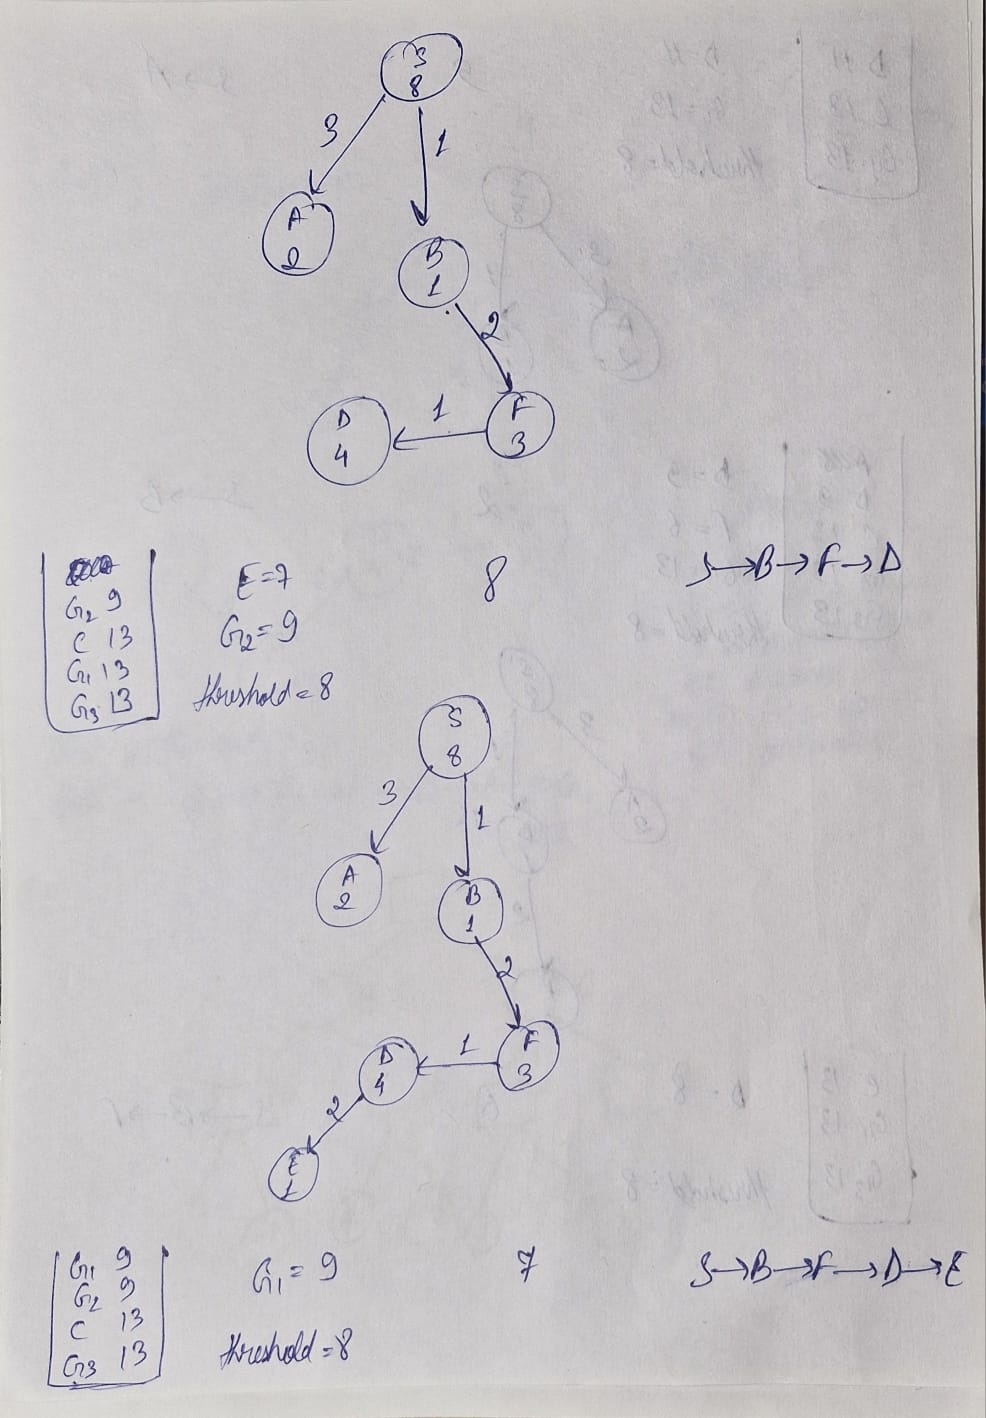 S
8
3
1
A
2
B
1
2
1
D
4
F
3
G2 9
C 13
G1 13
G3 13
E=7
G2=9
threshold=8
8
S→B→F→D
S
8
3
1
A
2
B
1
2
1
D
4
F
3
2
E
1
G1 9
G2 9
C 13
G3 13
G1=9
threshold=8
7
S→B→F→D→E